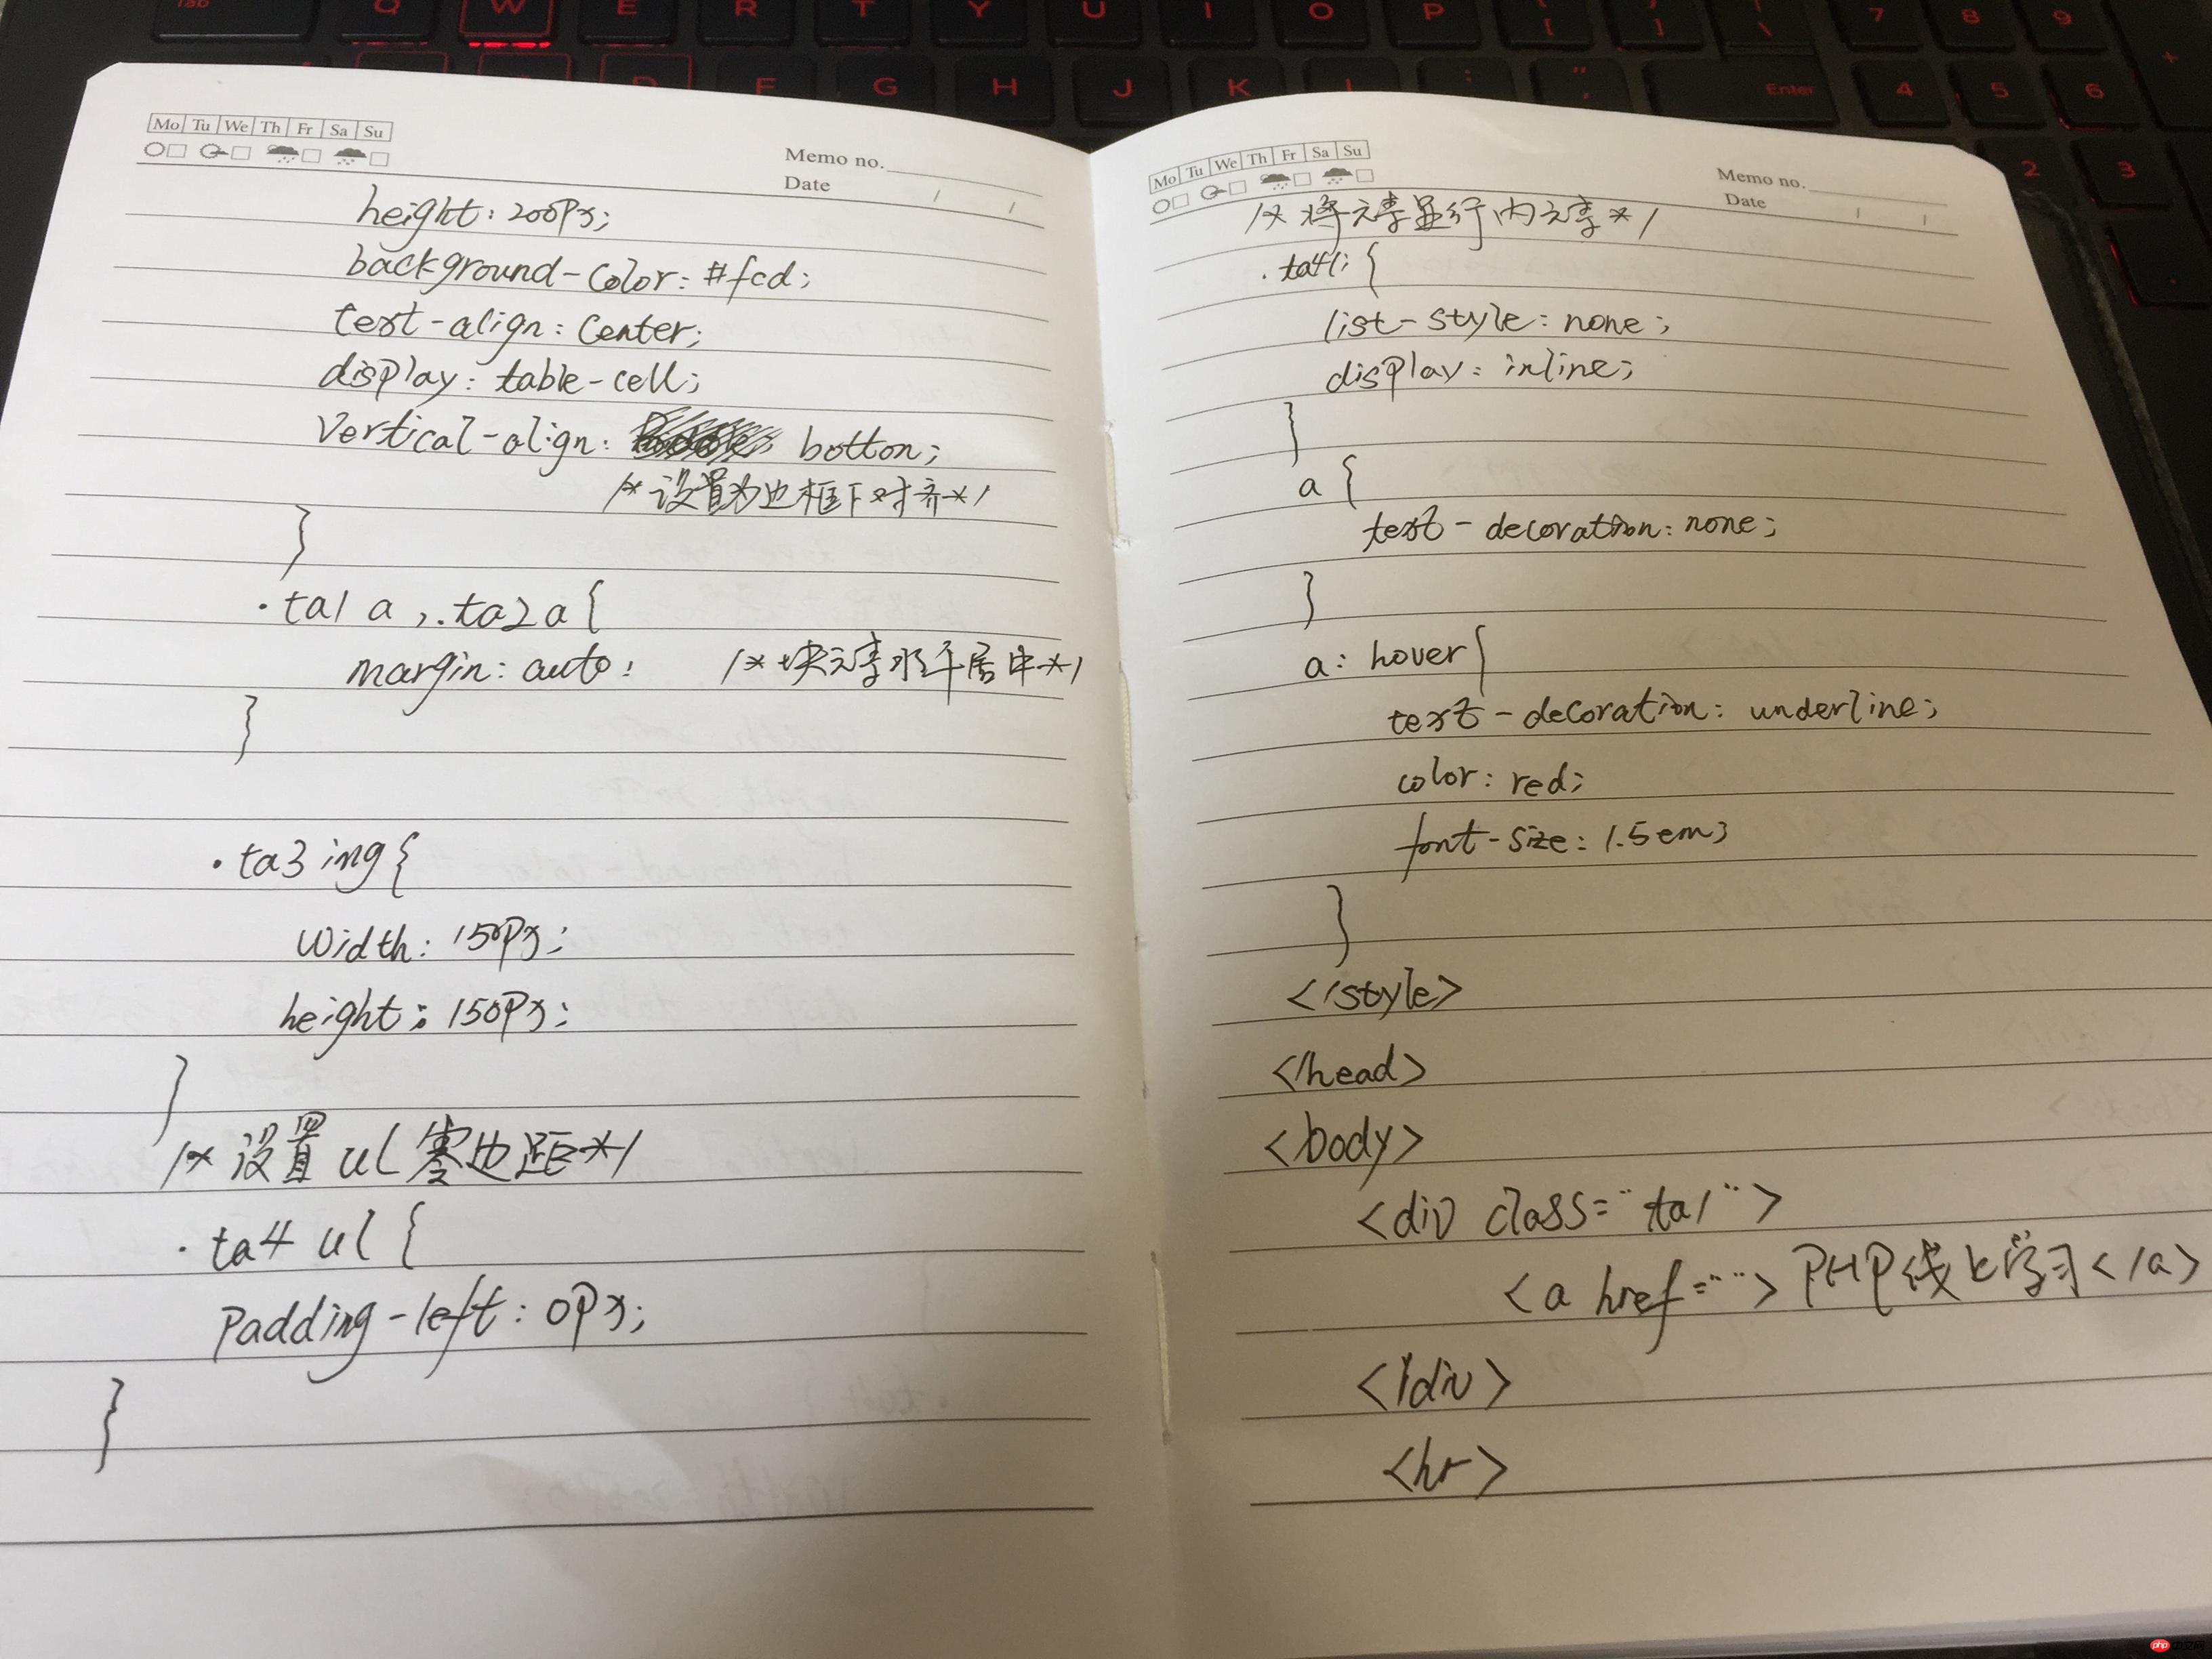 Tab Q W E R T Y U I O P { [ } ] | \ 7 8 9 +
D F G H J K L : ; " ' Enter 4 5 6
2 3
Mo Tu We Th Fr Sa Su
Memo no.
Date / /
height: 200px;
background-color: #fcd;
text-align: center;
display: table-cell;
vertical-align: botton;
/* 设置为边框下对齐 */
}
.ta1 a ,.ta2 a {
margin: auto; /* 块元素水平居中 */
}
.ta3 img {
width: 150px;
height: 150px;
}
/* 设置 ul 零边距 */
.ta4 ul {
padding-left: 0px;
}
Mo Tu We Th Fr Sa Su
Memo no.
Date / /
/* 将元素显行内元素 */
.ta4li {
list-style: none;
display: inline;
}
a {
text-decoration: none;
}
a: hover {
text-decoration: underline;
color: red;
font-size: 1.5em;
}
</style>
</head>
<body>
<div class="ta1">
<a href=""> PHP线上学习</a>
</div>
<hr>
php中文网